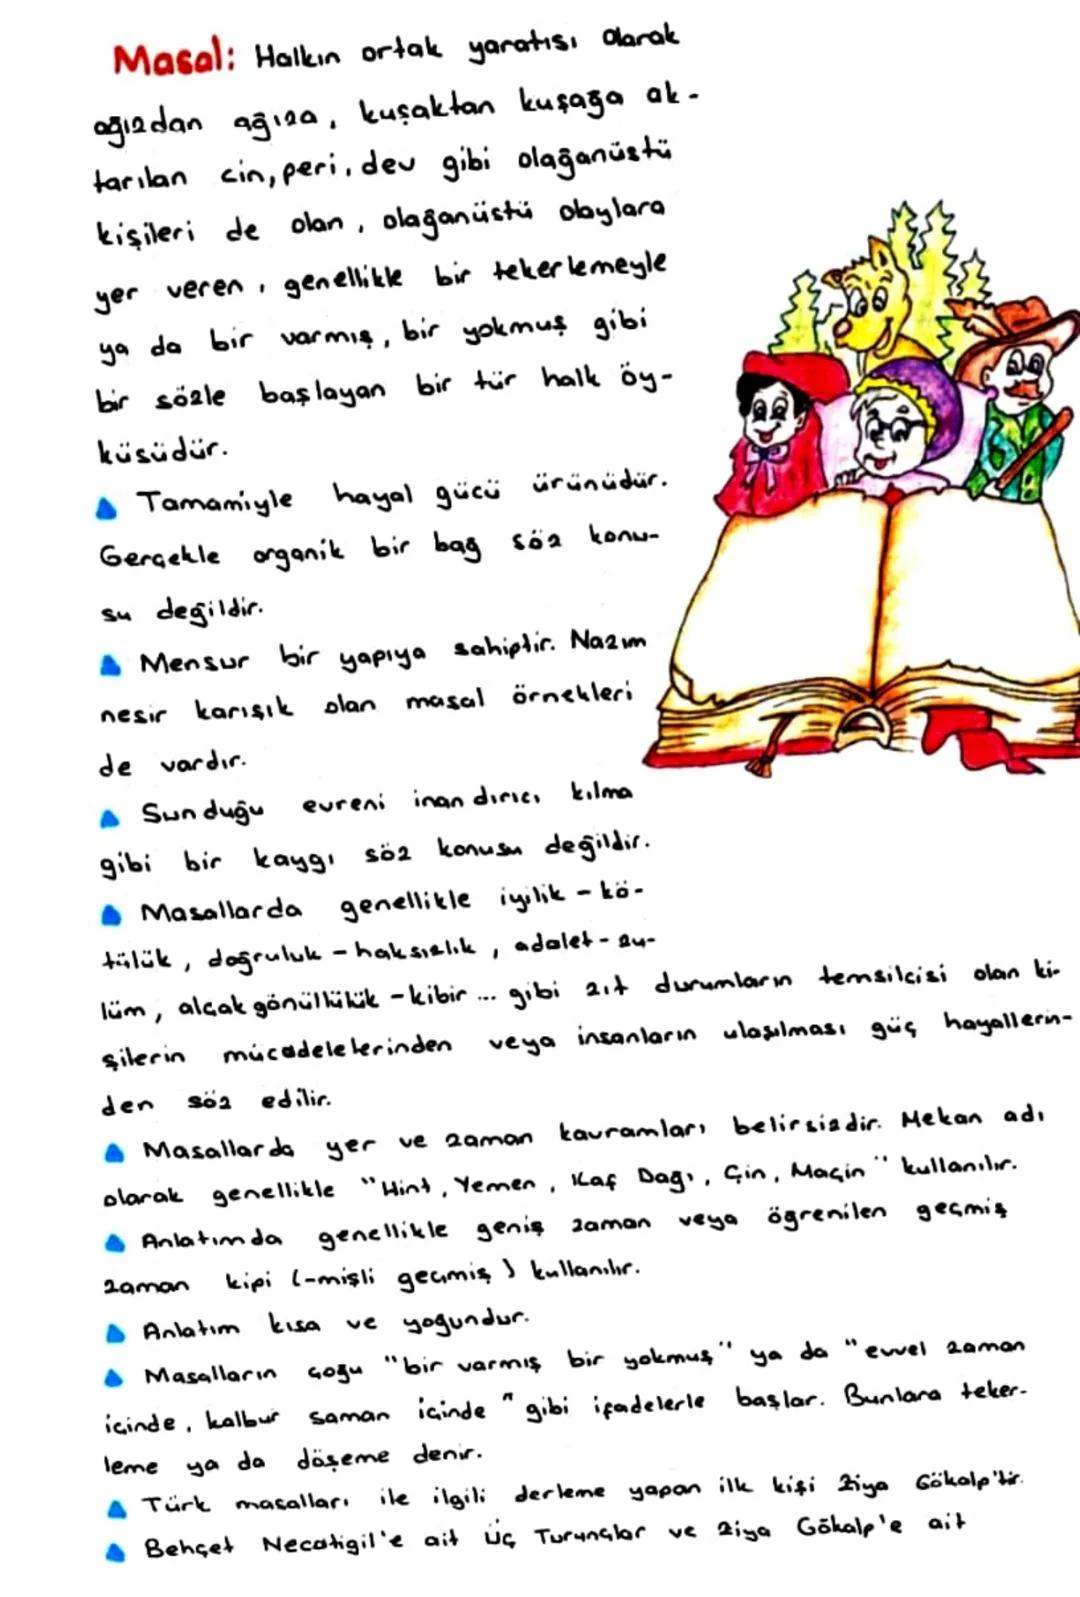 Masal: Halkın ortak yaratısı olarak
ağızdan ağıza, kuşaktan kuşağa ak-
tarılan cin, peri, dev gibi olağanüstü
kişileri de olan, olağanüstü olaylara
yer veren, genellikle bir tekerlemeyle
ya da bir varmış, bir yokmuş gibi
bir sözle başlayan bir tür halk öy-
küsüdür.
Tamamiyle hayal gücü ürünüdür.
Gerçekle organik bir bağ söz konu-
su değildir.
Mensur bir yapıya sahiptir. Nazım
nesir karışık olan masal örnekleri
de vardır.
Sunduğu evreni inandırıcı kılma
gibi bir kaygı söz konusu değildir.
Masallarda genellikle iyilik - kö-
tülük, doğruluk - haksızlık, adalet - zu-
lüm, alçak gönüllülük - kibir ... gibi zıt durumların temsilcisi olan ki-
şilerin mücadelelerinden veya insanların ulaşılması güç hayallerin-
den söz edilir.
Masallarda yer ve zaman kavramları belirsizdir. Mekan adı
olarak genellikle "Hint, Yemen, Kaf Dağı, Çin, Maçin" kullanılır.
Anlatımda genellikle geniş zaman veya öğrenilen geçmiş
zaman kipi (-mişli geçmiş) kullanılır.
Anlatım kısa ve yoğundur.
Masalların çoğu "bir varmış bir yokmuş" ya da "evvel zaman
içinde, kalbur saman içinde" gibi ifadelerle başlar. Bunlara teker-
leme ya da döşeme denir.
Türk masalları ile ilgili derleme yapan ilk kişi Ziya Gökalp'tir.
Behçet Necatigil'e ait Üç Turunçlar ve Ziya Gökalp'e ait